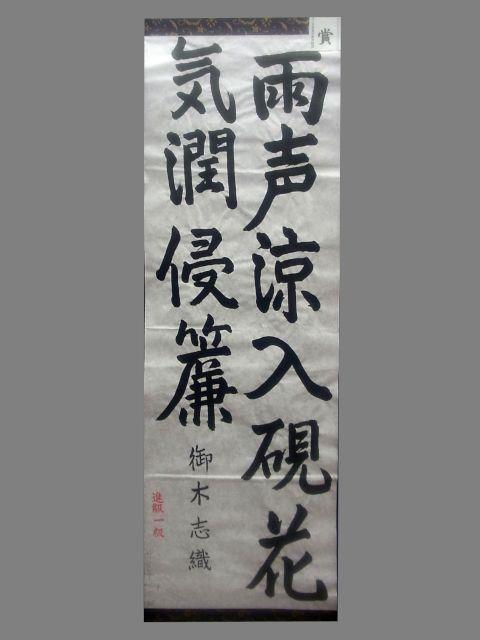 賞
雨声涼入硯花
気潤侵簾
御木志織
進級一級